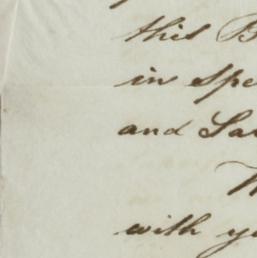 this B
in spe
and Sa
W
with y